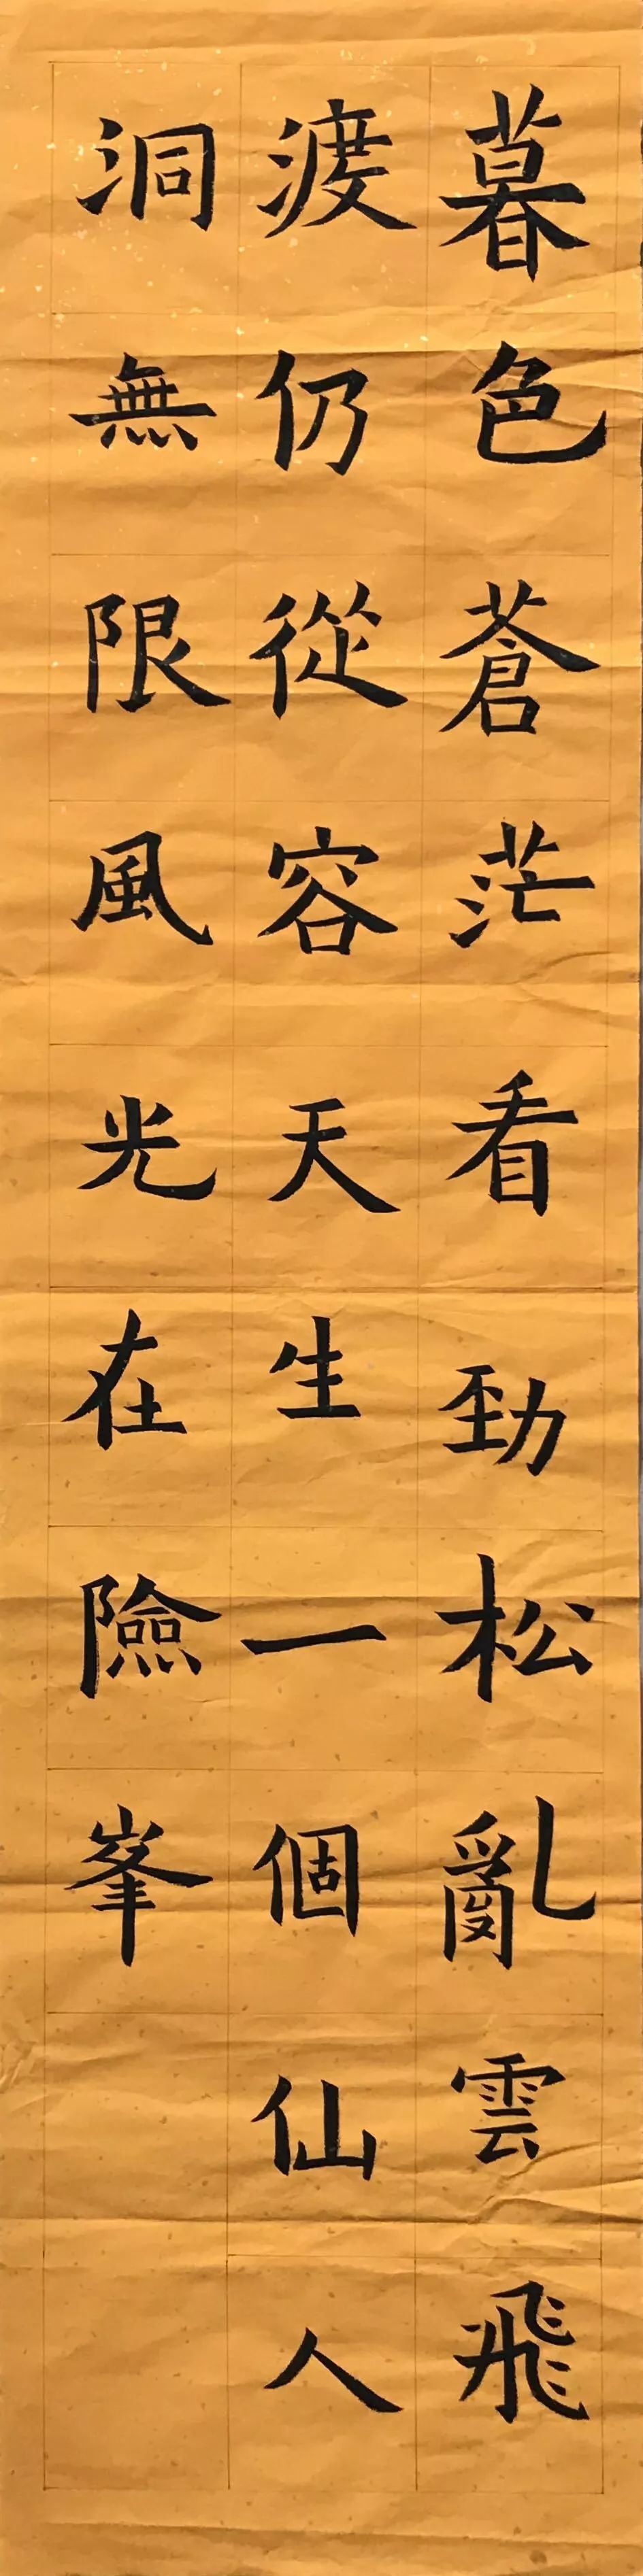 暮色蒼茫看勁松亂雲飛
渡仍從容天生一個仙人
洞無限風光在險峯